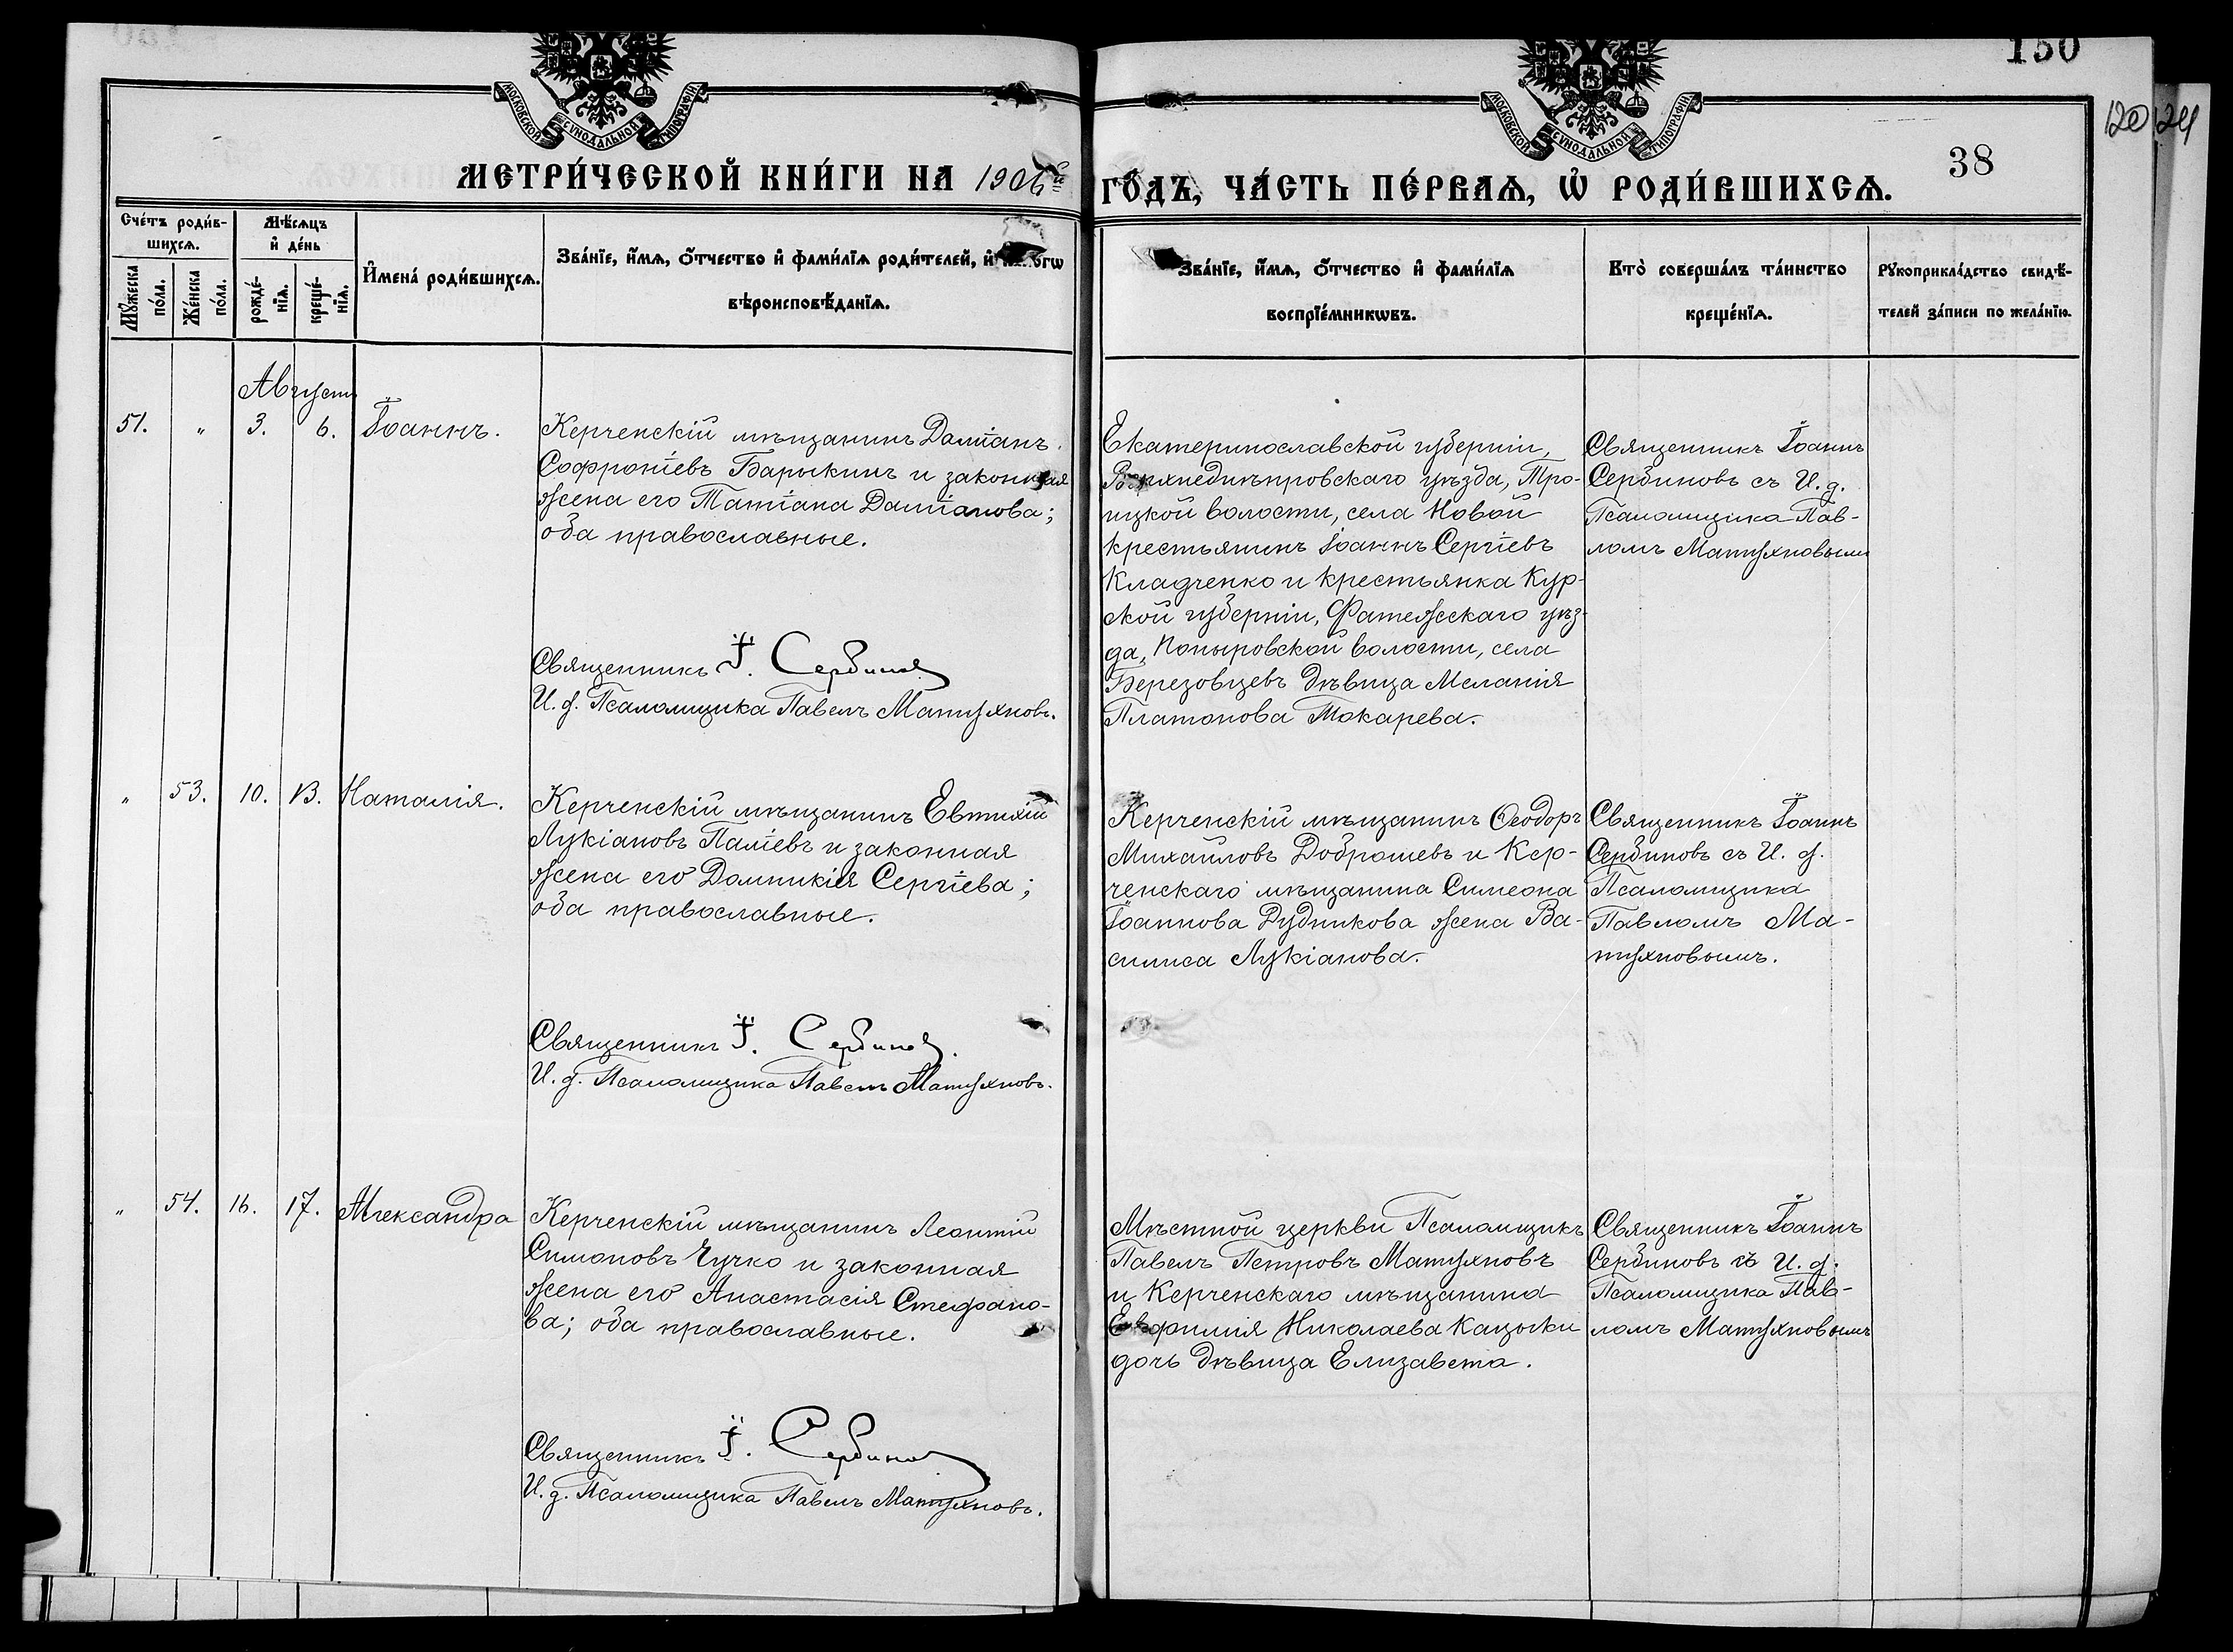 150
120 124
38
МОСКОВСКОЙ СУНОДАЛЬНОЙ ТИПОГРАФІИ
МОСКОВСКОЙ СУНОДАЛЬНОЙ ТИПОГРАФІИ
МЕТРИ́ЧЕСКОЙ КНИ́ГИ НА 1906й ГО́ДЪ, ЧА́СТЬ ПЕ́РВАѦ, Ѡ҆ РОДИ́ВШИХСѦ.
Сче́тъ роди́в-
шихсѧ.
Мꙋ́жеска по́ла.
Же́нска по́ла.
Мѣ́сѧцъ
и҆ де́нь
рожде́-
нїѧ.
креще́-
нїѧ.
И҆мена̀ роди́вшихсѧ.
Зва́нїе, и҆́мѧ, ѻ҆́тчество и҆ фами́лїѧ роди́телей, и҆
вѣроисповѣ́данїѧ.
Зва́нїе, и҆́мѧ, ѻ҆́тчество и҆ фами́лїѧ
воспрїе́мникѡвъ.
Кто̀ соверша́лъ та́инство
креще́нїѧ.
Рꙋкоприкла́дство свидѣ́-
телей за́писи по жела́нїю.
Августъ
51. " 3. 6. Іоаннъ.
Керченскій мѣщанинъ Даміанъ
Софроніевъ Барыкинъ и законная
жена его Татіана Даміанова;
оба православные.
Священникъ І. Сербиновъ
И. д. Псаломщика Павелъ Матухновъ.
Екатеринославской губерніи,
Верхнеднѣпровскаго уѣзда, Тро-
ицкой волости, села Новой
крестьянинъ Іоаннъ Сергіевъ
Кладченко и крестьянка Кур-
ской губерніи, Фатежскаго уѣз-
да, Поныровской волости, села
Березовцевъ дѣвица Меланія
Платонова Токарева.
Священникъ Іоаннъ
Сербиновъ съ И. д.
Псаломщика Пав-
ломъ Матухновымъ
" 53. 10. 13. Наталія.
Керченскій мѣщанинъ Евтихій
Лукіановъ Паліевъ и законная
жена его Домникія Сергіева;
оба православные.
Священникъ І. Сербиновъ.
И. д. Псаломщика Павелъ Матухновъ.
Керченскій мѣщанинъ Ѳеодоръ
Михайловъ Доброшевъ и Кер-
ченскаго мѣщанина Симеона
Іоаннова Дудникова жена Ва-
силиса Лукіанова.
Священникъ Іоаннъ
Сербиновъ съ И. д.
Псаломщика
Павломъ Ма-
тухновымъ.
" 54. 16. 17. Александра
Керченскій мѣщанинъ Леонтій
Симоновъ Чучко и законная
жена его Анастасія Стефано-
ва; оба православные.
Священникъ І. Сербиновъ
И. д. Псаломщика Павелъ Матухновъ.
Мѣстной церкви Псаломщикъ
Павелъ Петровъ Матухновъ
и Керченскаго мѣщанина
Евфимія Николаева Кацыки
дочь дѣвица Елизавета.
Священникъ Іоаннъ
Сербиновъ съ И. д.
Псаломщика Пав-
ломъ Матухновымъ